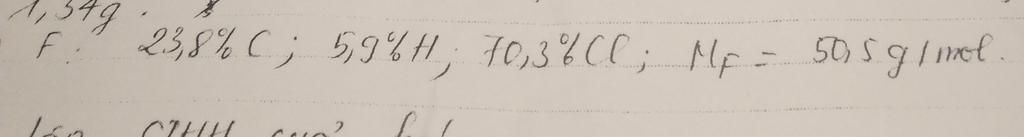 1,34g.
F: 23,8% C; 5,9% H; 70,3% Cl; MF = 50,5 g/mol.
CTHH